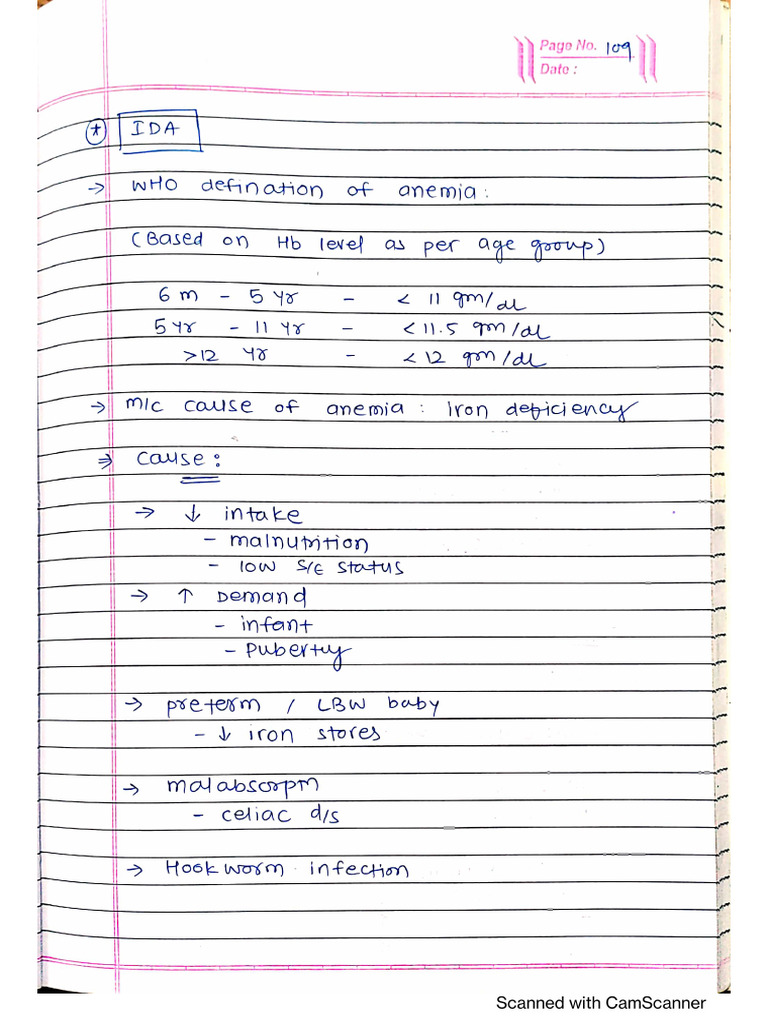 Page No. 109
Date :
* IDA
→ WHO defination of anemia:
(Based on Hb level as per age group)
6 m - 5 yr - < 11 gm/dL
5 yr - 11 yr - < 11.5 gm/dL
>12 yr - < 12 gm/dL
→ M/c cause of anemia: Iron deficiency
⇒ Cause:
→ ↓ intake
- malnutrition
- low S/E status
→ ↑ Demand
- infant
- Puberty
→ preterm / LBW baby
- ↓ iron stores
→ malabsorpm
- celiac d/s
→ Hookworm infection
Scanned with CamScanner